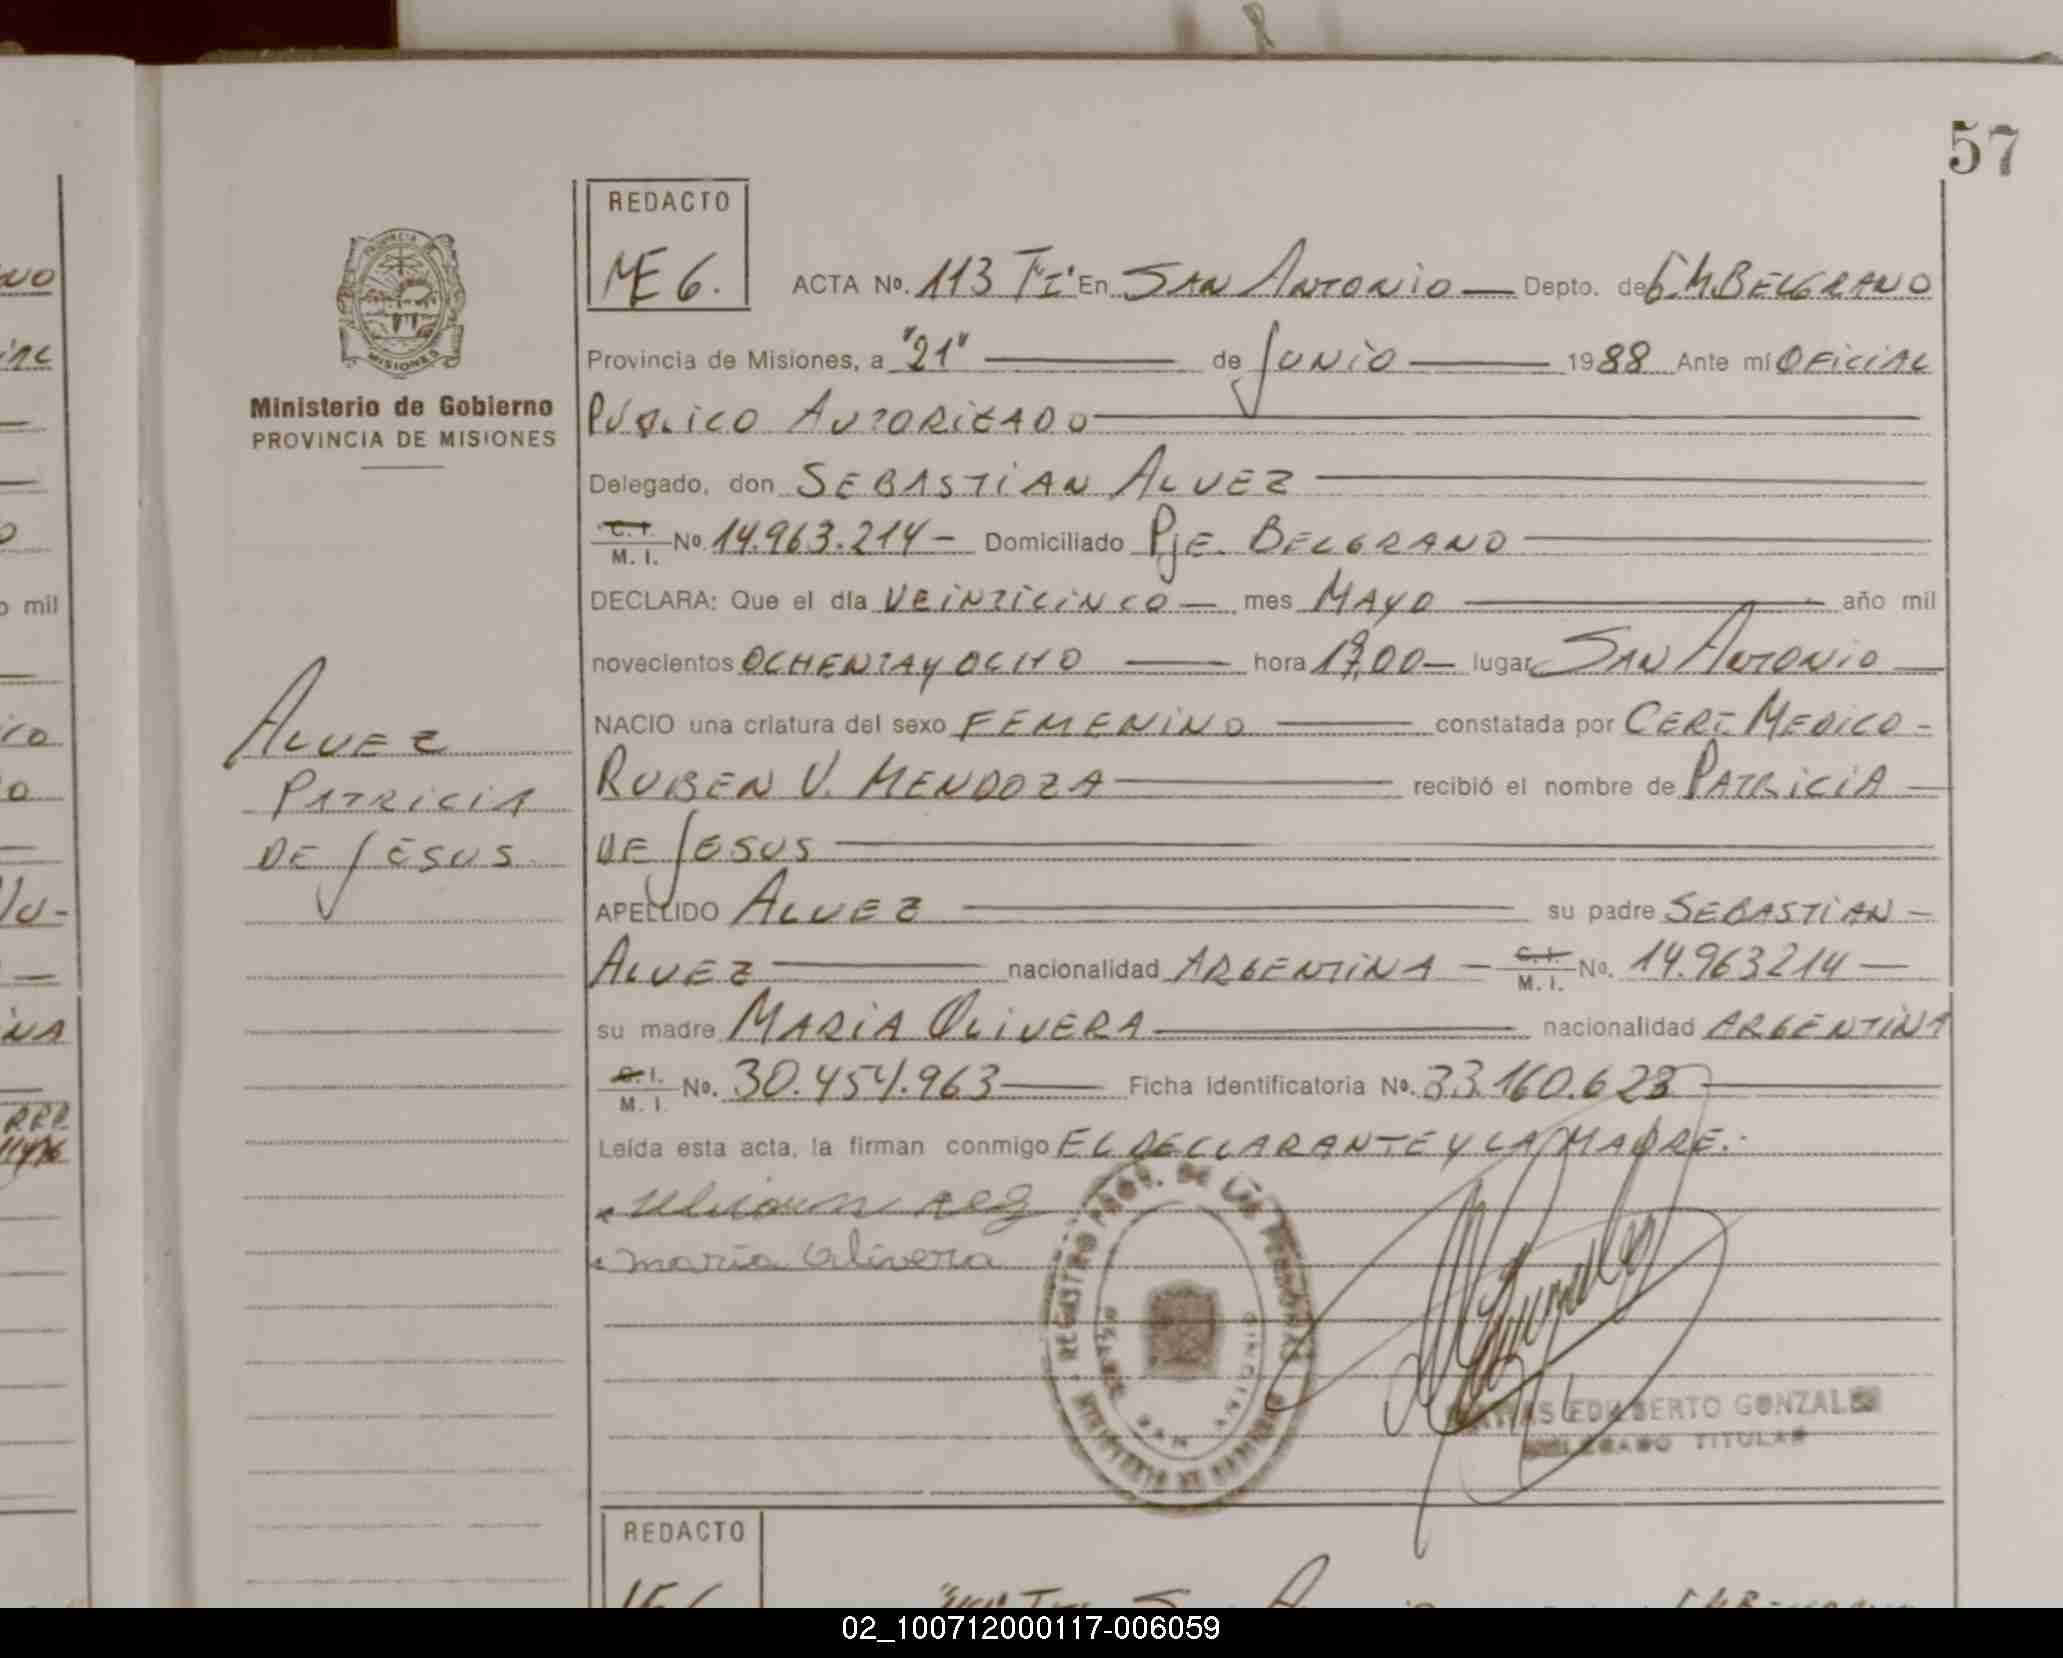 57
REDACTO
MEG.
ACTA Nº. 113 T"I" En SAN ANTONIO — Depto. de G.M.BELGRANO
Provincia de Misiones, a "21" — de JUNIO — 1988 Ante mí OFICIAL
PÚBLICO AUTORIZADO
Delegado, don SEBASTIAN ALVEZ
C.I.
M. I. Nº. 14.963.214 – Domiciliado PJE. BELGRANO
DECLARA: Que el día VEINTICINCO — mes MAYO — año mil
novecientos OCHENTA y OCHO — hora lugar SAN ANTONIO —
NACIO una criatura del sexo FEMENINO — constatada por CERT. MEDICO –
RUBEN V. MENDOZA — recibió el nombre de PATRICIA —
DE JESUS
APELLIDO ALVEZ — su padre SEBASTIAN –
ALVEZ — nacionalidad ARGENTINA – C.I.
M. I. Nº. 14.963214 —
su madre MARIA OLIVERA — nacionalidad ARGENTINA
C.I.
M. I. Nº. 30.454.963 — Ficha Identificatoria Nº. 33.160.623 —
Leída esta acta, la firman conmigo EL DECLARANTE Y LA MADRE.-
maria Olivera
REGISTRO PROV. DE LAS PERSONAS
SAN ANTONIO
EDILBERTO GONZALEZ
DELEGADO TITULAR
PROVINCIA DE
MISIONES
Ministerio de Gobierno
PROVINCIA DE MISIONES
ALVEZ
PATRICIA
DE JESUS
REDACTO
02_100712000117-006059